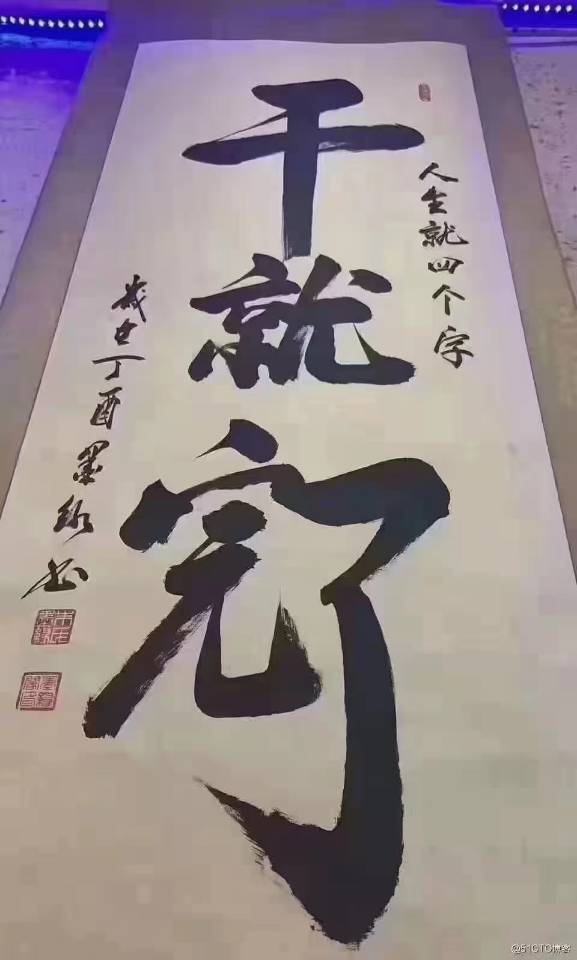 人生就四个字
干就完了
岁在丁酉墨缘书
@51CTO博客